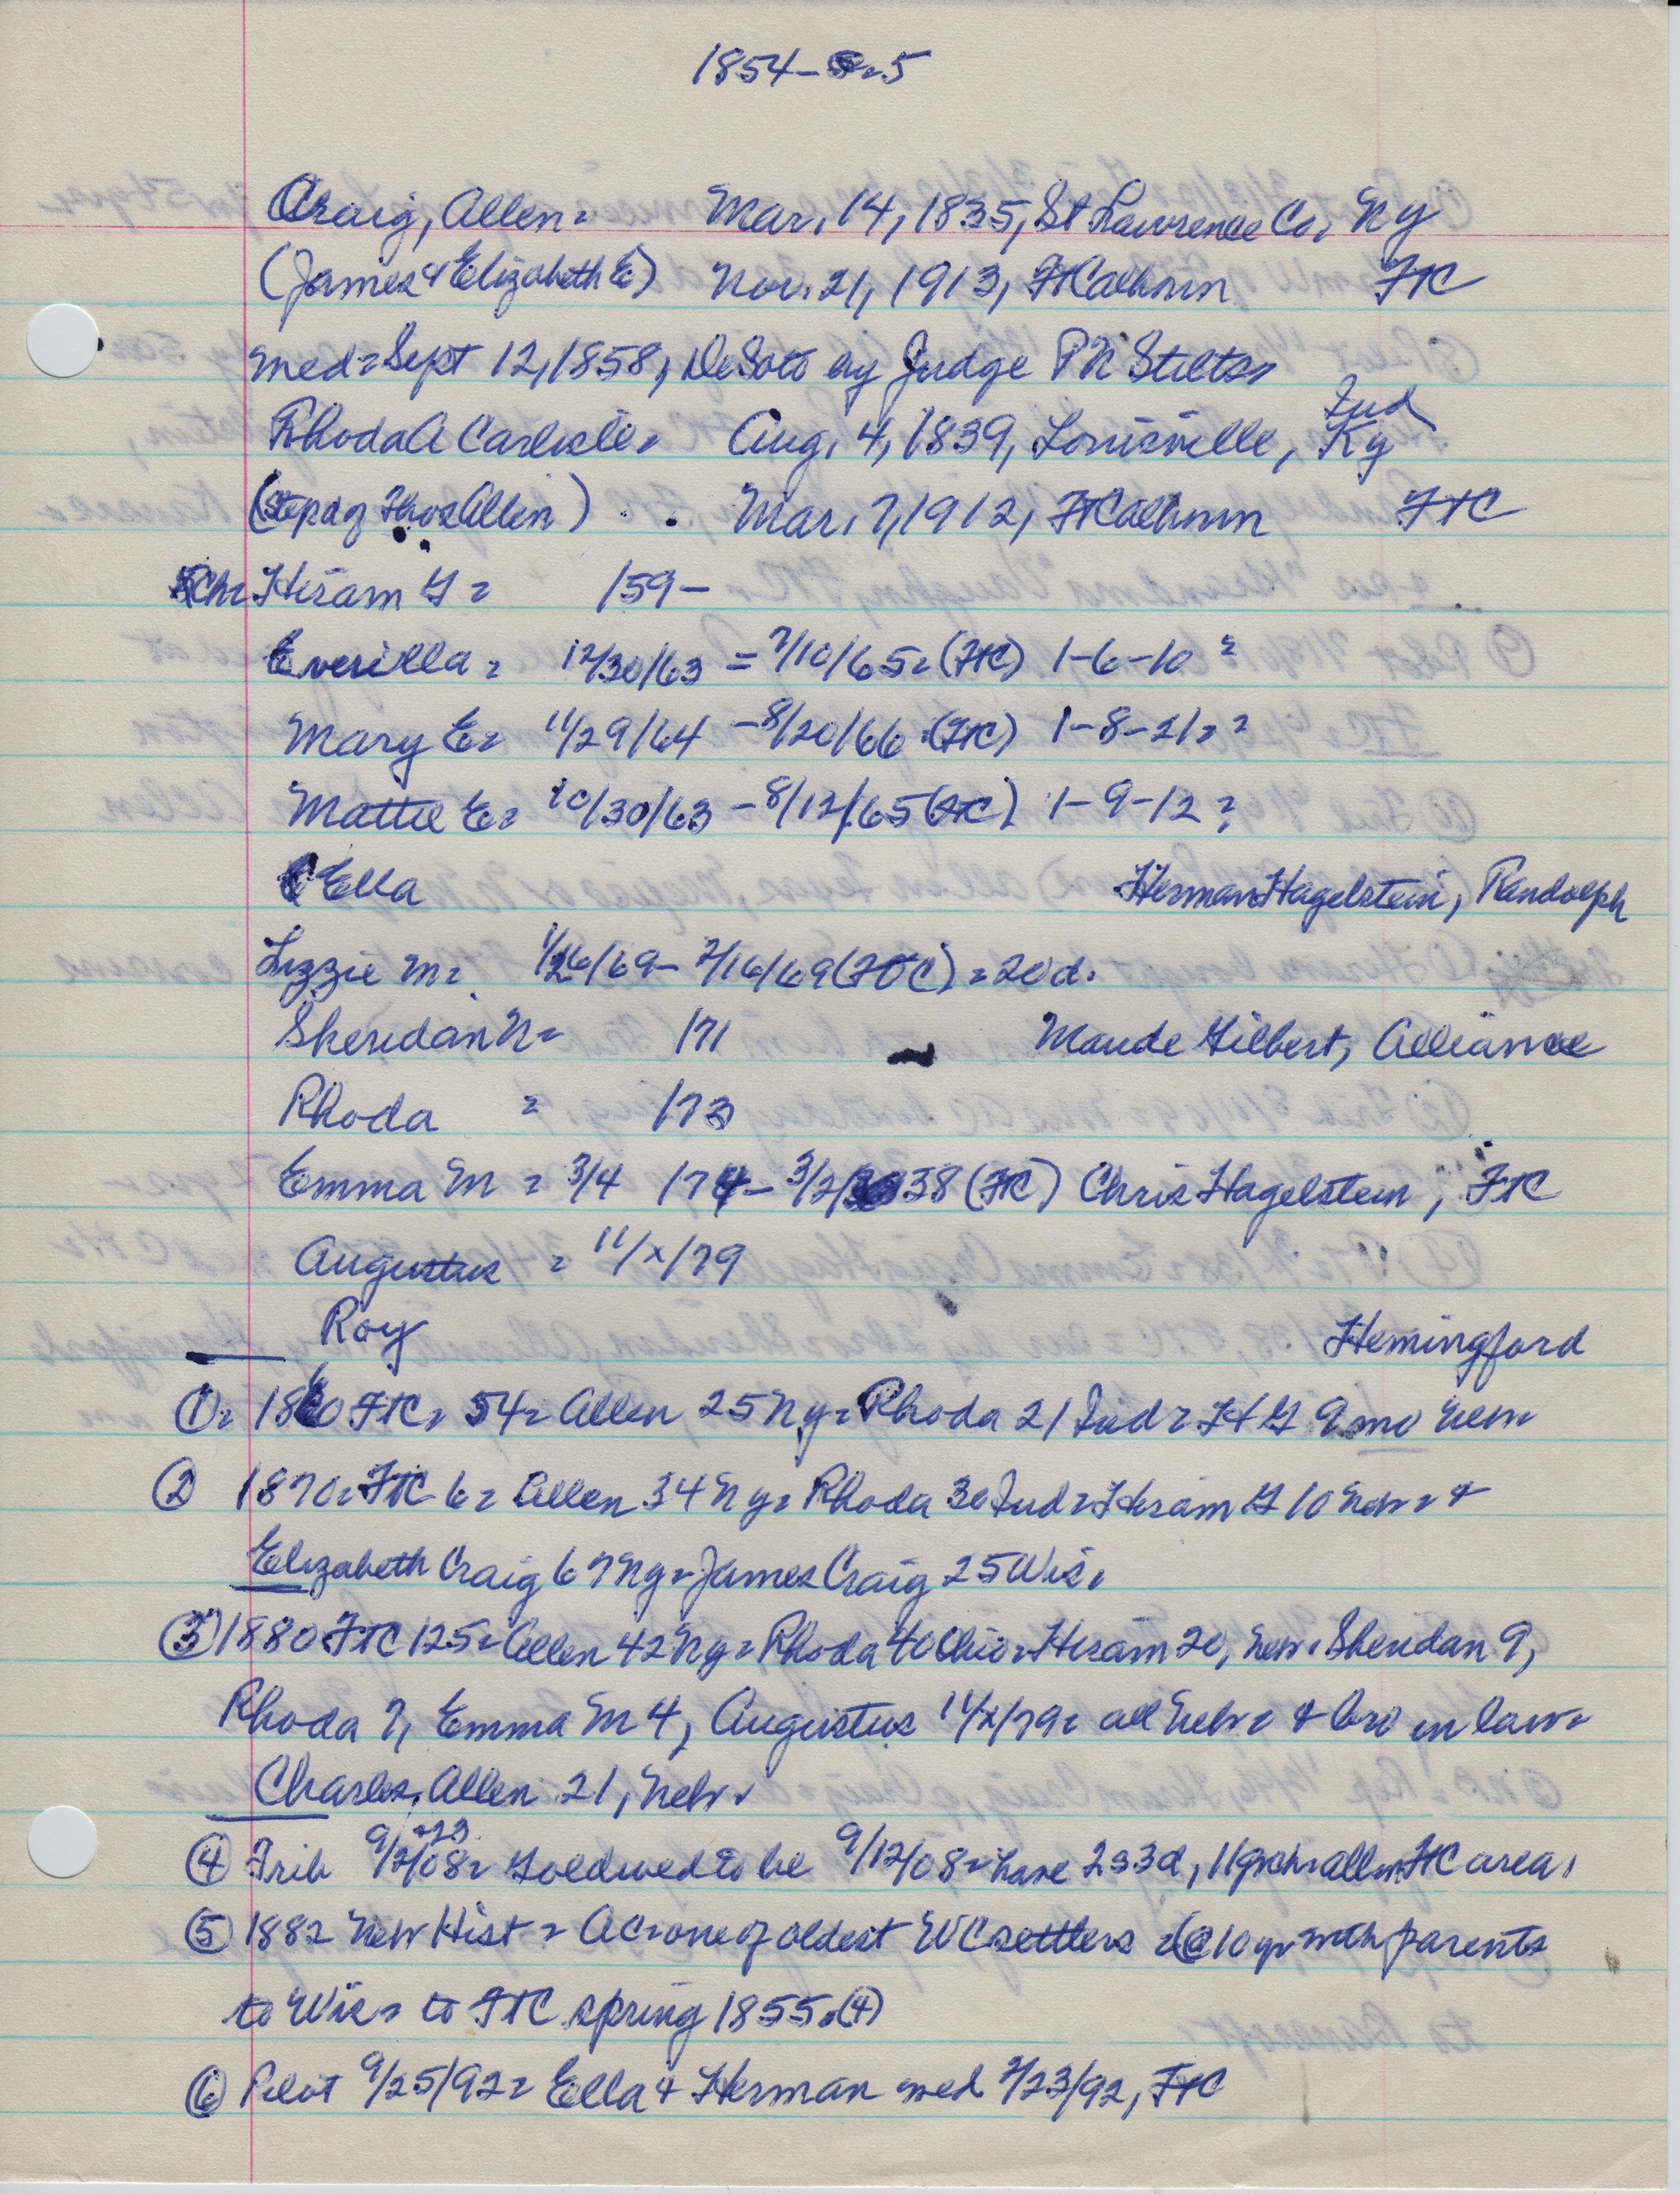 1854-5
Craig, Allen= Mar. 14, 1835, St Lawrence Co, NY
(James & Elizabeth E) Nov. 21, 1913, FtCalhoun FTC
med= Sept 12, 1858, DeSoto by Judge PN Stilts=
Ind
Rhoda A Carlisle= Aug. 4, 1839, Louisville, Ky
(stepd of Thos Allen) Mar. 7, 1912, FtCalhoun FTC
Ch= Hiram G = /59-
Everilla = 12/30/63 = 7/10/65= (FTC) 1-6-10 ?
Mary E= 11/29/64 - 8/20/66 (FTC) 1-8-21= ?
Mattie E= 10/30/63 - 8/12/65 (FTC) 1-9-12 ?
Ella Herman Hagelstein, Randolph
Lizzie M= 1/26/69 - 2/16/69 (FTC) = 20d.
Sheridan N= /71 Maude Gilbert, Alliance
Rhoda = /73
Emma M = 3/4 /74 - 3/2/38 (FTC) Chris Hagelstein, FTC
Augustus = 11/x/79
Roy Hemingford
①= 1860 FTC= 54= Allen 25 NY= Rhoda 21 Ind= H G 9 mo Neb=
② 1870= FTC 6= Allen 34 NY= Rhoda 30 Ind= Hiram G 10 Neb= &
Elizabeth Craig 67 NY= James Craig 25 Wis.
③ 1880 FTC 125= Allen 42 NY= Rhoda 40 Ohio= Hiram 20, Neb. Sheridan 9,
Rhoda 7, Emma M 4, Augustus 11/x/79= all Nebr= & bro in law=
Charles Allen 21, Nebr.
+23
④ Trib 9/2/08= Gold wed to be 9/12/08= have 2s 3d, 11 grch= all in FTC area.
⑤ 1882 Neb Hist = AC=one of oldest WC settlers =(@10 yr with parents
to Wis= to FTC spring 1855. (4)
⑥ Pilot 9/25/92= Ella & Herman med 7/23/92, FTC